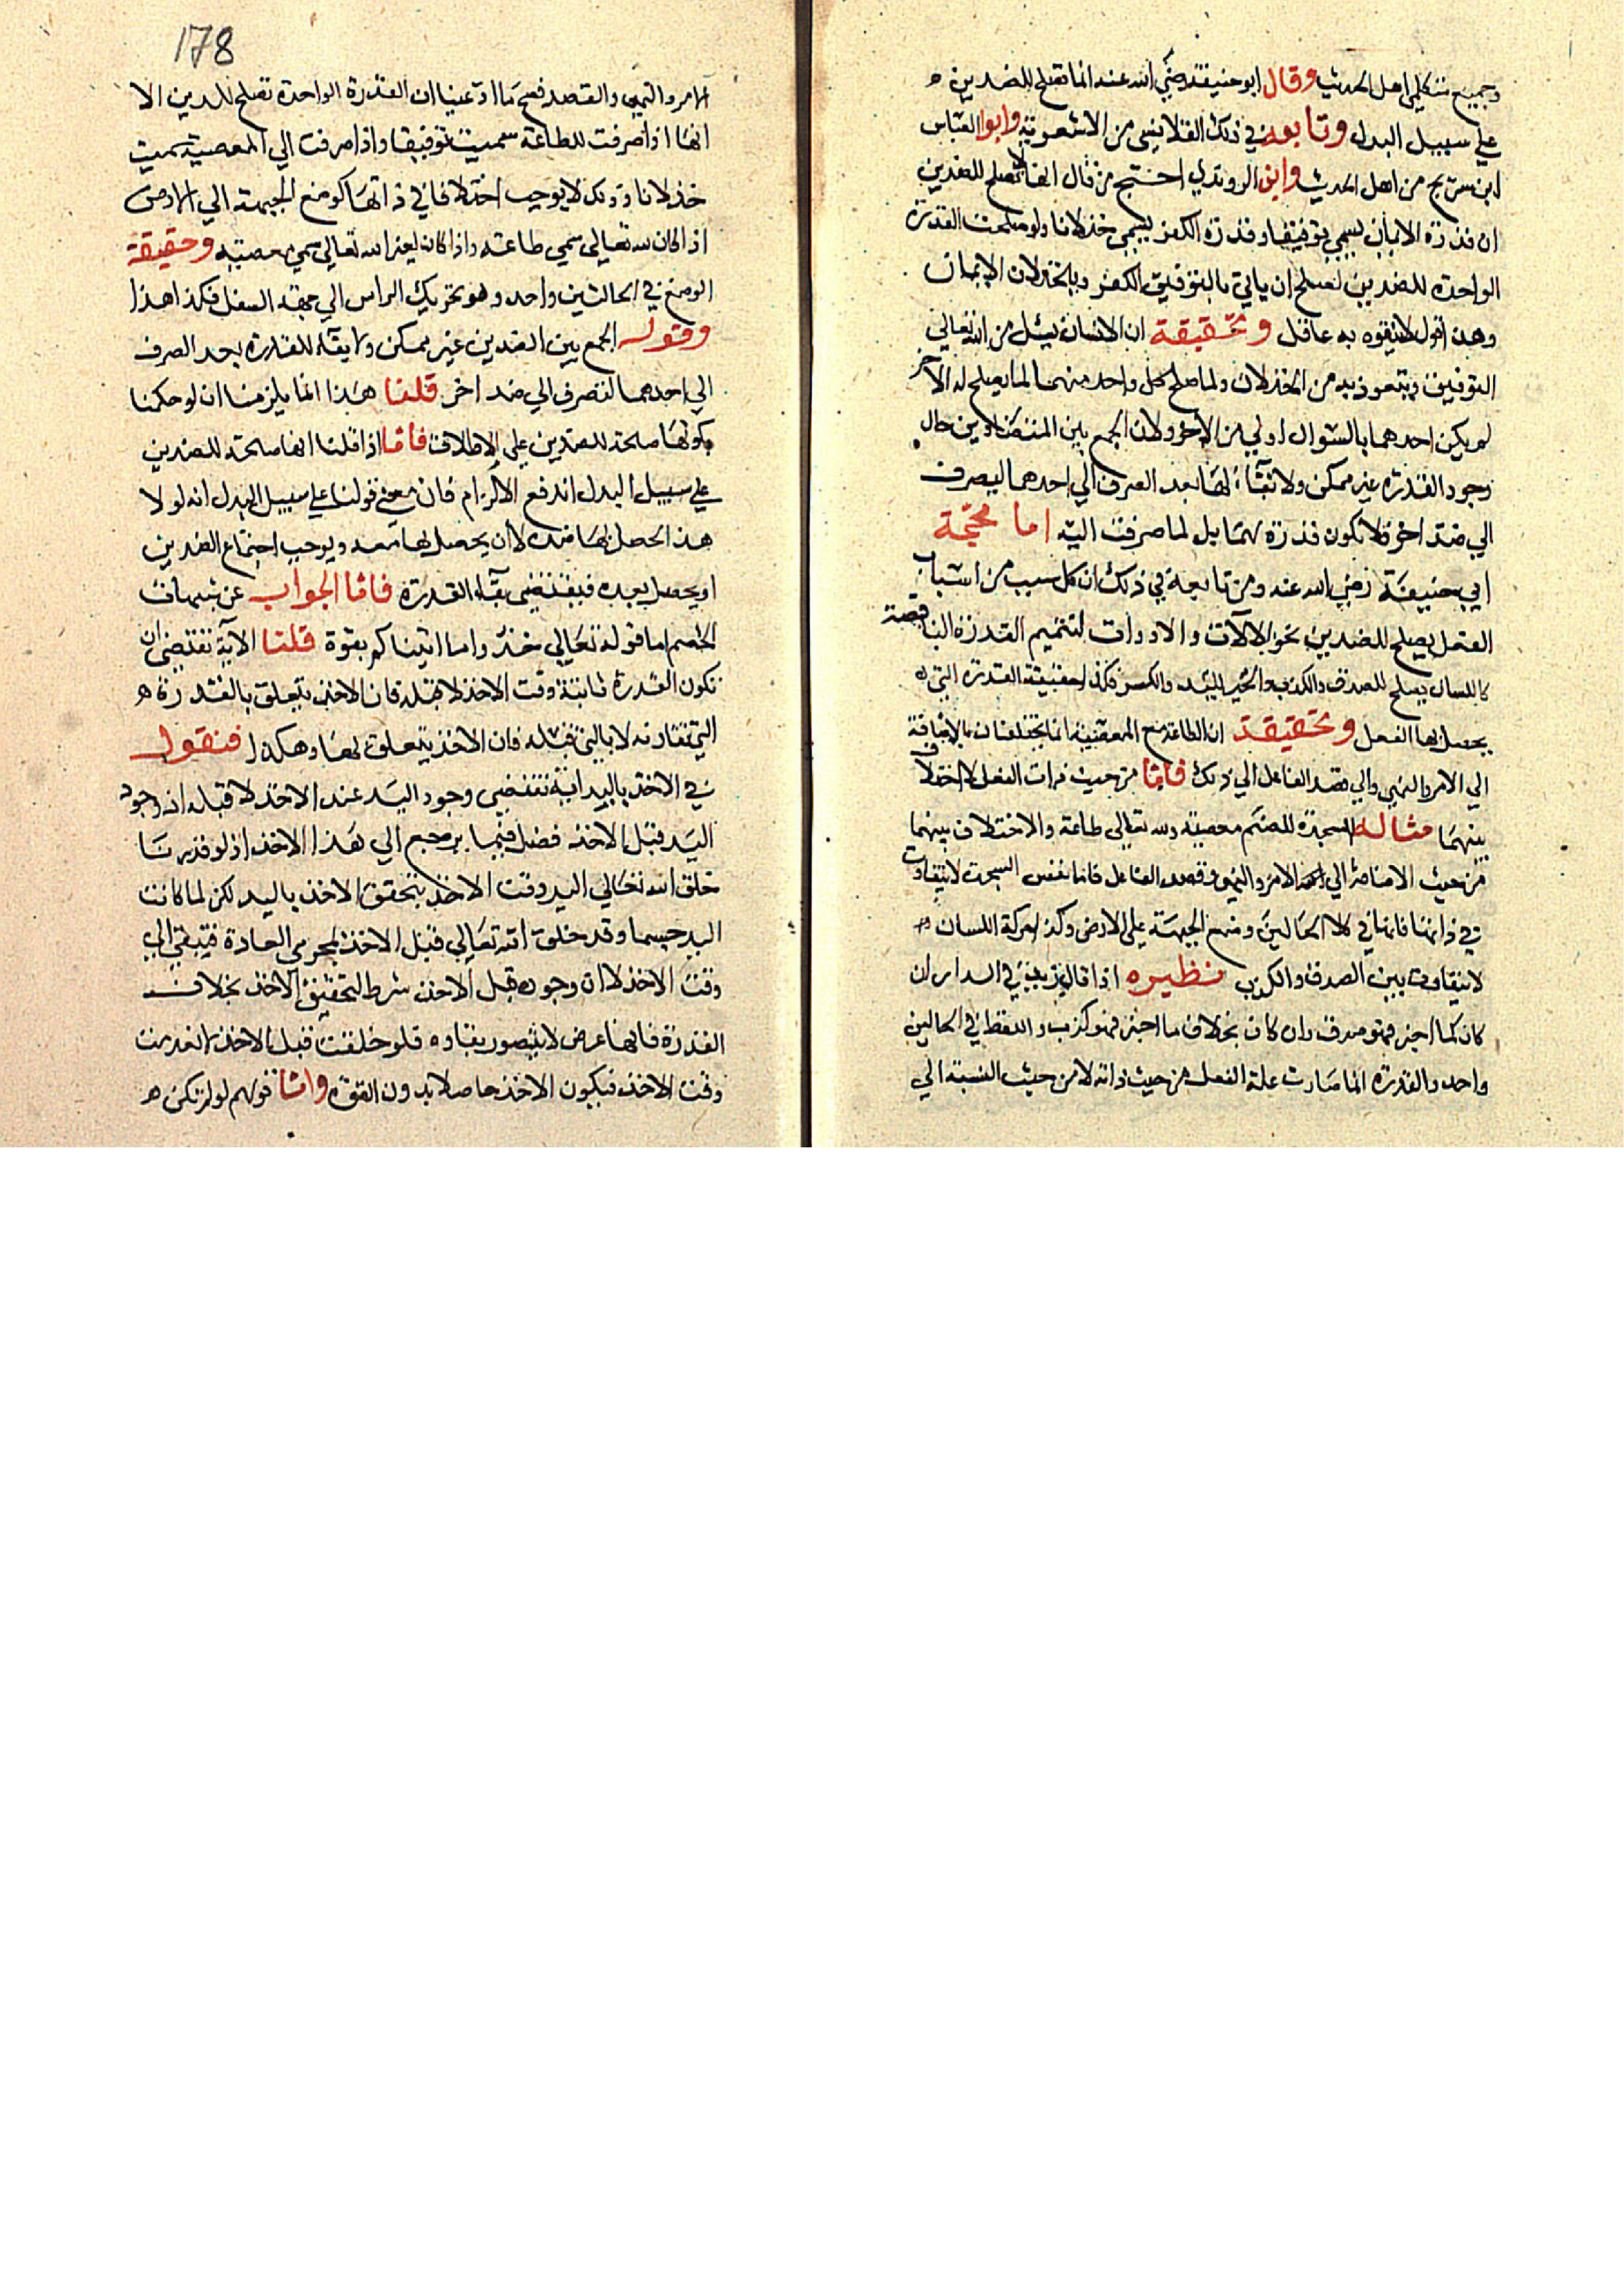 وجميع متكلمي اهل الحديث وقال ابو حنيفة رضي الله عنه انها تصلح للضدين
علي سبيل البدل وتابعه في ذلك القلانسي من الاشعرية وابوا العباس
ابن سريج من اهل الحديث وابن الروندي احتج من قال انها لا تصلح للضدين
ان قدرة الايمان يسمي توفيقا وقدرة الكفر يسمي خذلانا ولو صلحت القدرة
الواحدة للضدين لصلح ان ياتي بالتوفيق الكفر وبالخذلان الايمان
وهذا قول لا يتفوه به عاقل وتحقيقة ان الانسان يسئل من الله تعالي
التوفيق ويتعوذ به من الخذلان ولما صلح كل واحد منهما لما يصلح له الآخر
لم يكن احدهما بالسوال اولي من الآخر ولان الجمع بين المتضادين حال
وجود القدرة غير ممكن ولا بقاء لها بعد الصرف الي احدهما ليصرف
الي ضد اخر فلا تكون قدرة لهما بل لما صرفت اليه اما حجة
ابي حنيفة رضي الله عنه ومن تابعه في ذلك ان كل سبب من اسباب
الفعل يصلح للضدين نحو الآلات والادوات لتتميم القدرة الناقصة
كاللسان يصلح للصدق والكذب واليد للخير والشر فكذا حقيقة القدرة التي
يحصل بها الفعل وتحقيقة ان الطاعة مع المعصية انما يختلفان بالاضافة
الي الامر والنهي والي قصد الفاعل الي ذلك فاما من حيث ذات الفعل لا اختلاف
بينهما مثاله السجدة للصنم معصية ولله تعالي طاعة والاختلاف بينهما
من حيث الاضافة الي الامر والنهي وقصد الفاعل فاما نفس السجدة لا يتفاوت
في ذاتها فانها في كلا الحالين وضع الجبهة علي الارض وكذا حركة اللسان
لا يتفاوت بين الصدق والكذب نظيره اذا قال زيد في الدار ان
كان كما اخبر فهو صدق وان كان بخلاف ما اخبر فهو كذب واللفظ في الحالين
واحد والقدرة انما صارت علة الفعل من حيث ذاته لا من حيث النسبة الي
178
الامر والنهي والقصد فصح ما ادعينا ان القدرة الواحدة تصلح للضدين الا
انها اذا صرفت للطاعة سميت توفيقا واذا صرفت الي المعصية سميت
خذلانا وذلك لا يوجب اختلافا في ذاتها كوضع الجبهة الي الارض
اذا كان لله تعالي سمي طاعة واذا كان لغير الله تعالي سمي معصية وحقيقة
الوضع في الحالتين واحد وهو تحريك الراس الي جهة السفل فكذا هذا
وقوله الجمع بين الضدين غير ممكن ولا بقاء للقدرة بعد الصرف
الي احدهما لتصرف الي ضد اخر قلنا هذا انما يلزمنا ان لو حكمنا
بكونها صالحة للضدين علي الاطلاق فاما اذا قلنا انها صالحة للضدين
علي سبيل البدل اندفع الالزام فان معني قولنا علي سبيل البدل انه لولا
هذا لحصل بها ضده لا ان يحصل بها معه ويوجب اجتماع الضدين
او يحصل بعده فيقتضي بقاء القدرة فاما الجواب عن شبهات
الخصم اما قوله تعالي خذوا ما اتيناكم بقوة قلنا الآية تقتضي ان
تكون القدرة ثابتة وقت الاخذ لا قبله فان الاخذ يتعلق بالقدرة
التي تقارنه لا بالتي قبله فان الاخذ يتعلق بها وهكذا فنقول
في الاخذ باليد انه تقتضي وجود اليد عند الاخذ لا قبله اذ وجود
اليد قبل الاخذ فضل فيما يرجع الي هذا الاخذ اذ لو قدرنا
خلق الله تعالي اليد وقت الاخذ يتحقق الاخذ باليد لكن لما كانت
اليد جسما وقد خلق الله تعالي قبل الاخذ لمجري العادة فتبقي الي
وقت الاخذ لا ان وجوده قبل الاخذ شرط لتحقيق الاخذ بخلاف
القدرة فانها عرض لا يتصور بقاوه فلو خلقت قبل الاخذ لانعدمت
وقت الاخذ فيكون الاخذ حاصلا بدون القوة واما قولهم لو لم تكن